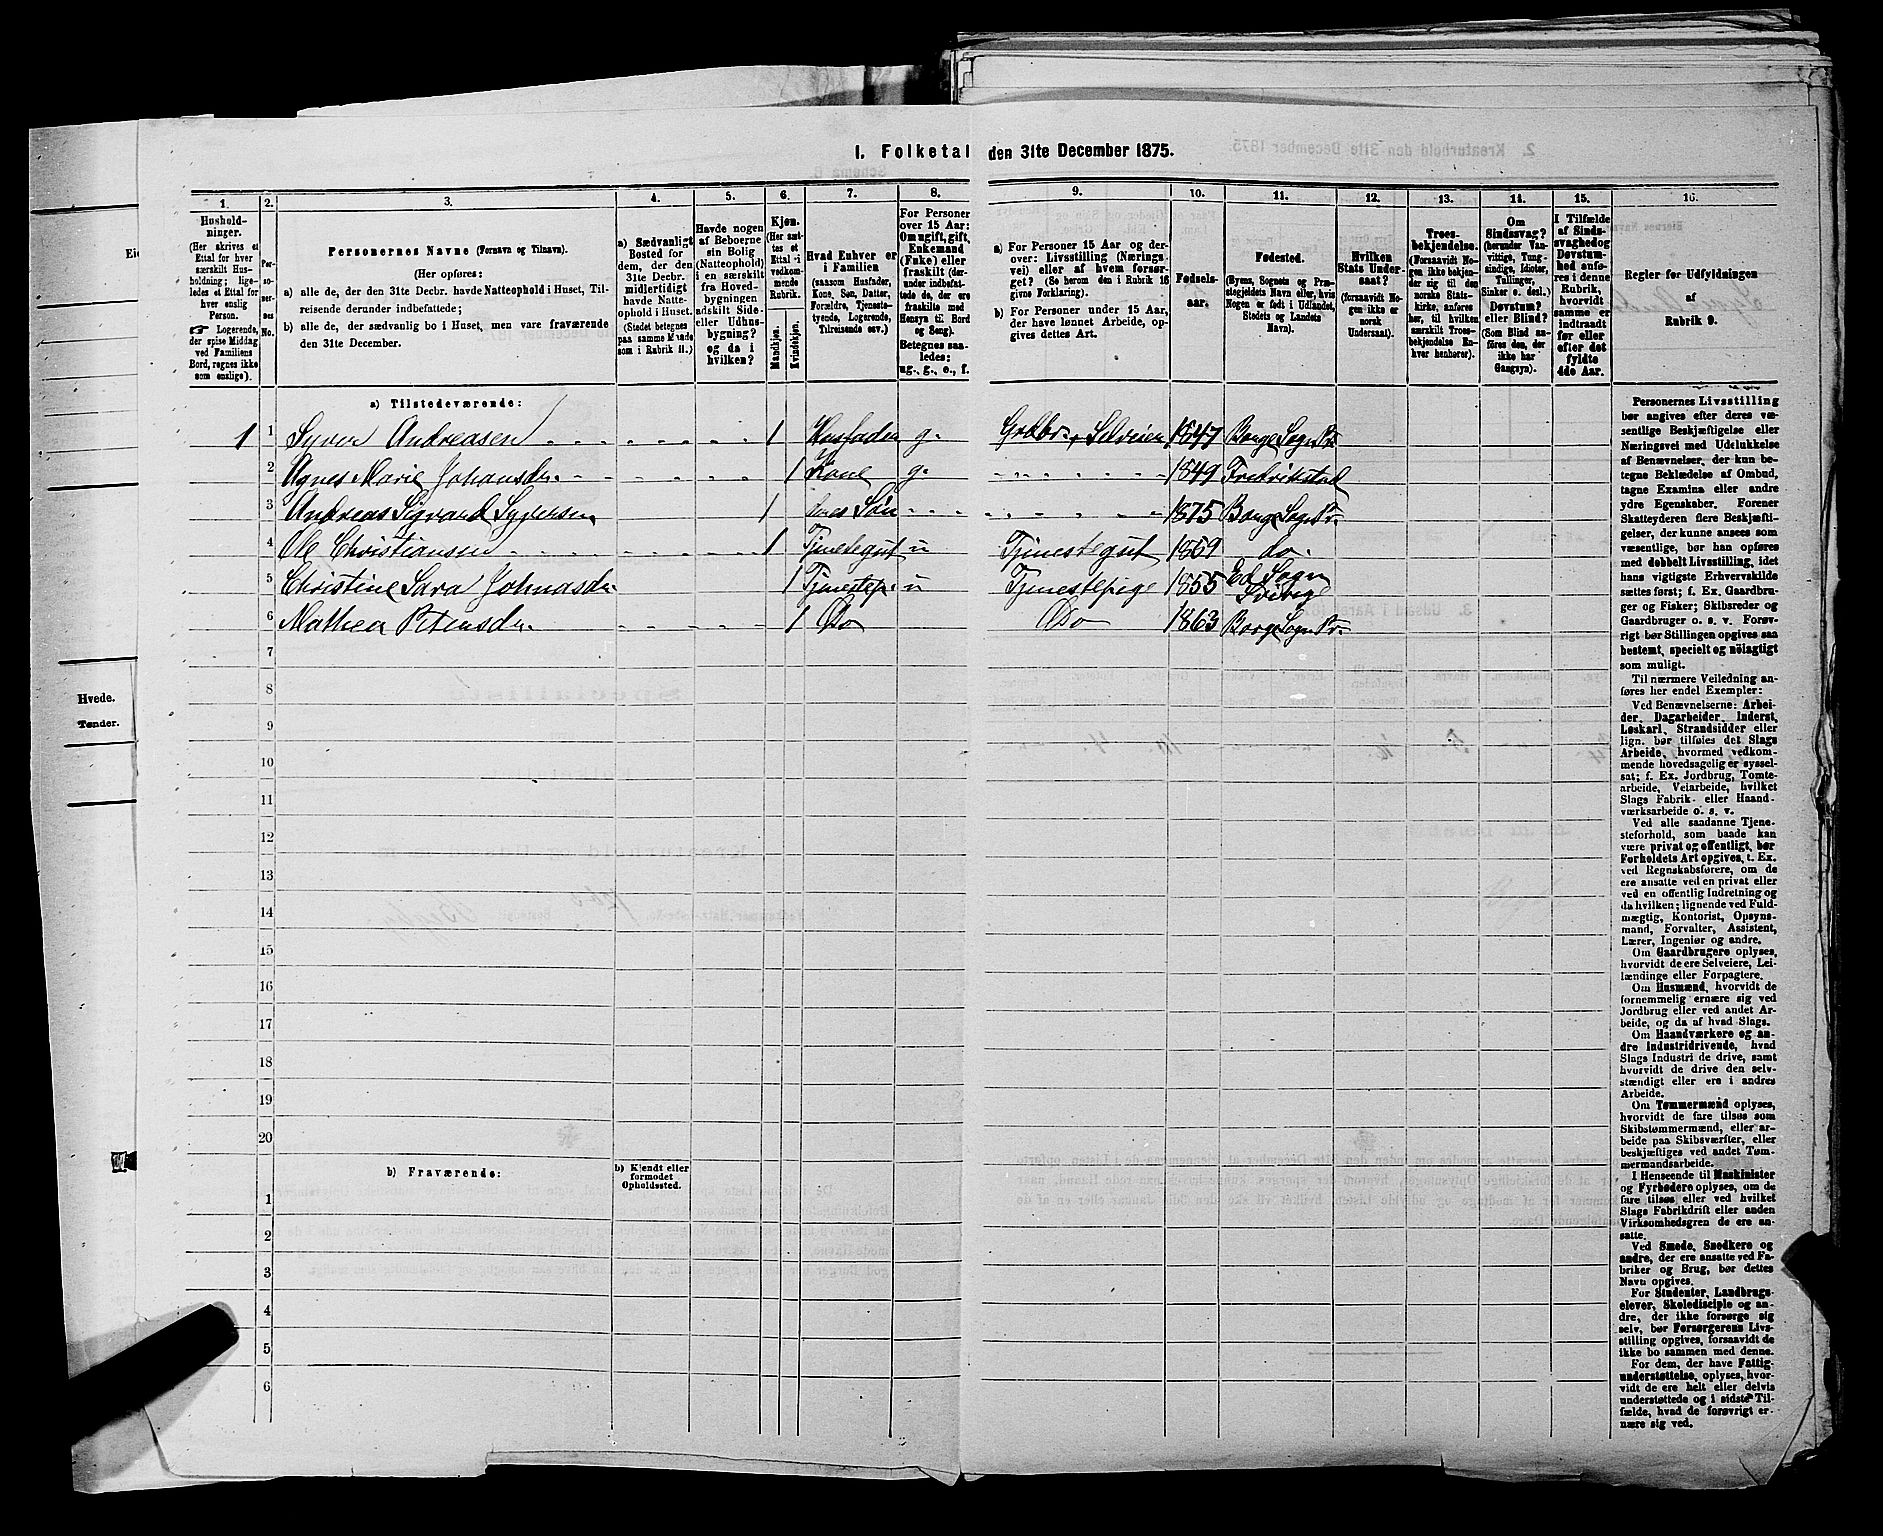 I. Folketal den 31te December 1875.
1.
2.
3.
4.
5.
6.
7.
8.
9.
10.
11.
12.
13.
14.
15.
16.
Husholdninger.
(Her skrives et Ettal for hver særskilt Husholdning; ligeledes et Ettal for hver enslig Person.
☞ Logerende, der spise Middag ved Familiens Bord, regnes ikke som enslige).
Personernes No.
Personernes Navne (Fornavn og Tilnavn).
(Her opføres:
a) alle de, der den 31te Decbr. havde Natteophold i Huset, Tilreisende derunder indbefattede;
b) alle de, der sædvanlig bo i Huset, men vare fraværende den 31te December.
a) Sædvanligt Bosted for dem, der den 31te Decbr. midlertidigt havde Natteophold i Huset.
(Stedet betegnes paa samme Maade som i Rubrik 11.)
Havde nogen af Beboerne sin Bolig (Natteophold) i en særskilt fra Hovedbygningen adskilt Side- eller Udhusbygning? og da i hvilken?
Kjøn.
(Her sættes et Ettal i vedkommende Rubrik.
Mandkjøn.
Kvindekjøn.
Hvad Enhver er i Familien
(saasom Husfader, Kone, Søn, Datter, Forældre, Tjenestetyende, Logerende, Tilreisende osv.)
For Personer over 15 Aar: Om ugift, gift, Enkemand (Enke) eller fraskilt (derunder indbefattede de, der ere fraskilte med Hensyn til Bord og Seng).
Betegnes saaledes: ug., g., e., f.
a) For Personer 15 Aar og derover: Livsstilling (Næringsvei) eller af hvem forsørget? (Se herom den i Rubrik 16 givne Forklaring).
b) For Personer under 15 Aar, der have lønnet Arbeide, opgives dettes Art.
Fødselsaar.
Fødested.
(Byens, Sognets og Præstegjeldets Navn eller, hvis Nogen er født i Udlandet, Stedets og Landets Navn).
Hvilken Stats Undersaat?
(forsaavidt Nogen ikke er norsk Undersaat).
Troesbekjendelse.
(Forsaavidt Nogen ikke bekjender sig til den norske Statskirke, anføres her, til hvilken særskilt Troesbekjendelse Enhver henhører).
Om Sindssvag? (herunder Vanvittige, Tungsindige, Idioter, Tullinger, Sinker o. desl.)
Døvstum? eller Blind? (Som Blind anføres den, der ikke har Gangsyn).
I Tilfælde af Sindssvaghed og Døvstumhed anføres i denne Rubrik, hvorvidt samme er indtraadt før eller efter det fyldte 4de Aar.
Regler for Udfyldningen
af
Rubrik 9.
a) Tilstedeværende:
1 1 Syver Andreasen 1 Husfader g. Grdbr., Selveier 1847 Borge Sogn Pr.
2 Agnes Marie Johansdr. 1 Kone g. 1849 Fredrikstad
3 Andreas Sigvard Syversen 1 deres Søn 1875 Borge Sogn Pr.
4 Ole Christiansen 1 Tjenestegut u Tjenestegut 1859 do.
5 Christine Sara Johnasdr 1 Tjenestep. u Tjenestepige 1855 Ed Sogn
Sverige
6 Mathea Petersdr. 1 Do Do 1863 Borge Sogn Pr.
7
8
9
10
11
12
13
14
15
16
17
18
19
20
b) Fraværende:
b) Kjendt eller formodet Opholdssted.
1
2
3
4
5
6
Hvede.
Tønder.
Personernes Livsstilling
bør angives efter deres væ-
sentlige Beskjæftigelse eller
Næringsvei med Udelukkelse
af Benævnelser, der kun be-
tegne Beklædelse af Ombud,
tagne Examina eller andre
ydre Egenskaber. Forener
Skatteyderen flere Beskjæfti-
gelser, der kunne ansees som
væsentlige, bør han opføres
med dobbelt Livsstilling, idet
hans vigtigste Erhvervskilde
sættes først; f. Ex. Gaardbru-
ger og Fisker; Skibsreder og
Gaardbruger o. s. v. Forøv-
rigt bør Stillingen opgives saa
bestemt, specielt og nöiagtigt
som muligt.
Til nærmere Veiledning an-
føres her endel Exempler:
Ved Benævnelserne: Arbei-
der, Dagarbeider, Inderst,
Løskarl, Strandsidder eller
lign. bør tilføies det Slags
Arbeide, hvormed vedkom-
mende hovedsagelig er syssel-
sat; f. Ex. Jordbrug, Tomte-
arbeide, Veiarbeide, hvilket
Slags Fabrik- eller Haand-
værksarbeide o. s. v.
Ved alle saadanne Tjene-
steforhold, som baade kan
være privat og offentligt, bør
Forholdets Art opgives, t. Ex.
ved Regnskabsførere, om de
ere ansatte ved en privat eller
ved en offentlig Indretning og
da hvilken; lignende ved Fuld-
mægtig, Kontorist, Opsyns-
mand, Forvalter, Assistent,
Lærer, Ingeniør og andre.
Om Gaardbrugere oplyses,
hvorvidt de ere Selveiere, Lei-
lændinge eller Forpagtere.
Om Husmænd, hvorvidt de
fornemmelig ernære sig ved
Jordbrug eller ved andet Ar-
beide, og da af hvad Slags.
Om Haandværkere og an-
dre Industridrivende, hvad
Slags Industri de drive, samt
hvorvidt de drive den selv-
stændigt eller ere i andres
Arbeide.
Om Tømmermænd oplyses,
hvorvidt de fare tilsøs som
Skibstømmermænd, eller ar-
beide paa Skibsværfter, eller
beskjæftiges ved andet Tøm-
mermandsarbeide.
I Henseende til Maskinister
og Fyrbødere oplyses, om de
fare tilsøs eller ved hvilket
Slags Fabrikdrift eller anden
Virksomhedsgren de ere an-
satte.
Ved Smede, Snedkere og
andre, der ere ansatte ved Fa-
briker og Brug, bør dettes
Navn opgives.
For Studenter, Landbrugs-
elever, Skoledisciple og an-
dre, der ikke forsørge sig
selv, bør Forsørgerens Livs-
stilling opgives, forsaavidt de
ikke bo sammen med denne.
For dem, der have Fattig-
understøttelse, oplyses, hvor-
vidt de ere helt eller delvis
understøttede og i sidste Til-
fælde, hvad de forøvrigt er-
nære sig ved.